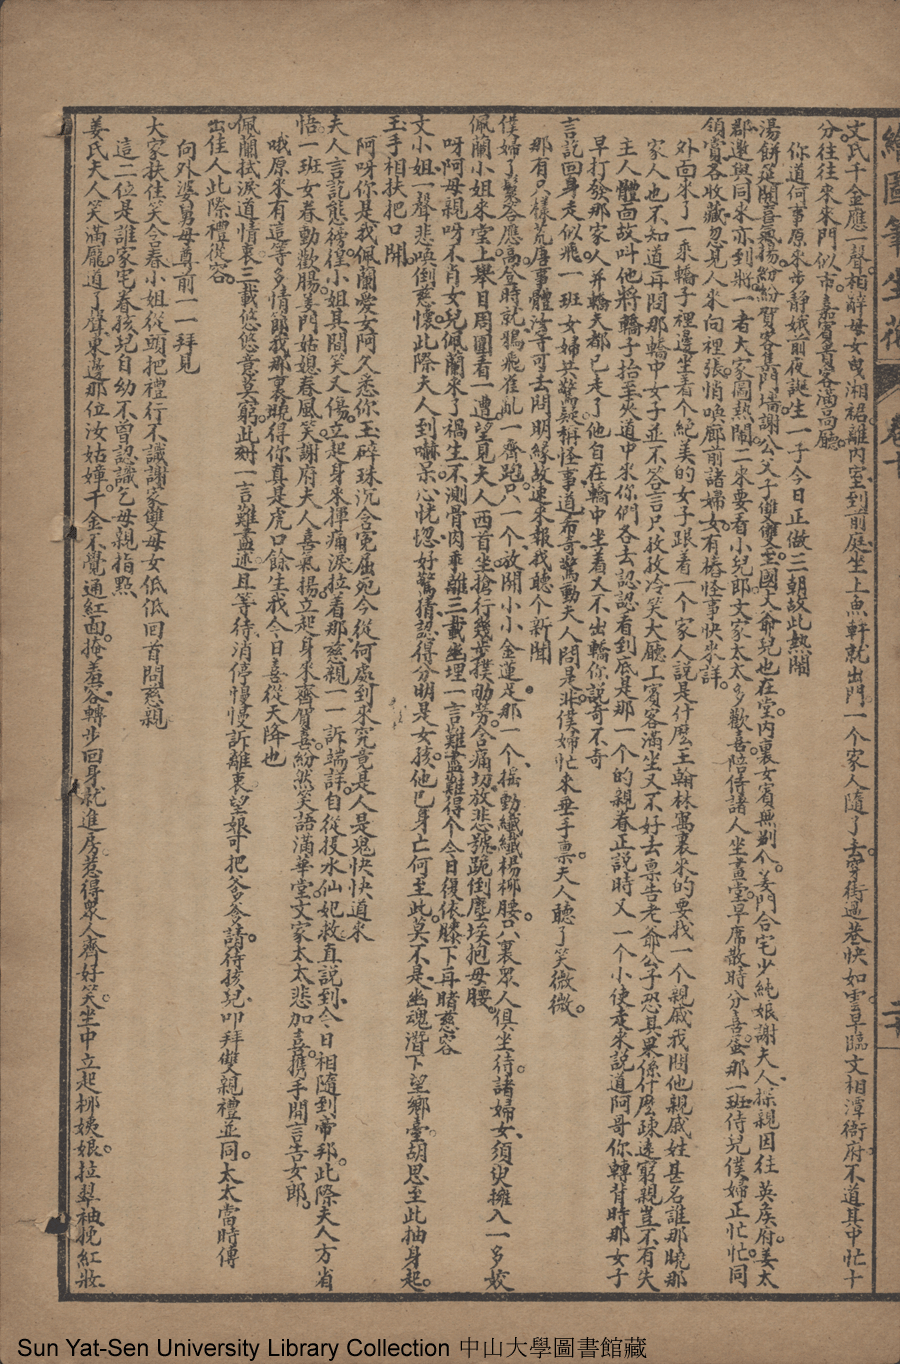 繪圖筆生花
卷十
文氏千金應一聲。相辭母女曳湘裙。離內室、到前庭、坐上魚軒就出門。一個家人隨了去。穿街過巷快如雲。早臨文相潭衙府、不道其中忙十
分。往往來來門似市。嘉賓貴客滿高廳。
你道何事原來步靜娥前夜誕生一子今日正做三朝故此熱鬧
湯餅筵開喜氣揚。紛紛賀客集門墻。謝公父子雙雙至。國丈爺兒也在堂。內裏女賓無別個。姜門合宅少純娘。謝夫人、探親因往英侯府。姜太
郡、邀與同來亦到將。一者大家圖熱鬧。二來要看小兒郎。文家太太多歡喜。陪侍諸人坐畫堂。早席散時分喜蛋。那一班、侍兒僕婦正忙忙。同
領賞、各收藏。忽見人來向裡張。悄喚廊前諸婦女。有樁怪事快來詳。
外面來了一乘轎子裡邊坐着個絕美的女子跟着一個家人說是什麽王翰林寓裏來的要找一個親戚我問他親戚姓甚名誰那曉那
家人也不知道再問那轎中女子並不答言只孜孜冷笑大廳上賓客滿坐又不好去稟告老爺公子恐其果係什麽疎遠窮親豈不有失
主人體面故叫他將轎子抬至夾道中來你們各去認認看到底是那一個的親眷正說時又一個小使走來說道阿哥你轉背時那女子
早打發那家人并轎夫都已走了他自在轎中坐着又不出轎你說奇不奇
那有只樣荒唐事體法等可去問明緣故速來報我聽個新聞
言訖回身走似飛。一班女婦共驚疑。稱怪事、道希奇。驚動夫人問是非。僕婦忙來垂手稟。夫人聽了笑微微。
僕婦丫鬟答應。高會時、就鴉飛雀亂一齊跑。只一個、放開小小金蓮足。那一個、搖動纖纖楊柳腰。以裏眾人俱坐待。諸婦女、須臾擁入一多姣
佩蘭小姐來堂上。舉目周圍看一遭。望見夫人西首坐、搶行幾步撲劬勞。含痛切、放悲號。跪倒塵埃抱母腰。
呀阿母親呀不肖女兒佩蘭來了禍生不測骨肉乖離三載幽埋一言難盡難得个今日復依膝下再睹慈容
文小姐、一聲悲喚倒慈懷。此際夫人到嚇呆。心恍惚、好驚猜。認得分明是女孩。他已身亡何至此。莫不是、幽魂潛下望鄉臺。胡思至此抽身起。
玉手相扶把口開。
阿呀你是我佩蘭愛女阿久悉你玉碎珠沉含冤屈宛今從何處到來究竟是人是鬼快快道來
夫人言訖態徬徨。小姐其間笑又傷。立起身來揮痛淚。拉着那、慈親一一訴端詳。自從投水仙妃救。直說到、今日相隨到帝邦。此際夫人方省
悟。一班女眷動歡腸。姜門姑媳春風笑。謝府夫人喜氣揚。立起身來齊賀喜。紛然笑語滿華堂。文家太太悲加喜。携手開言告女郎。
哦原來有這等多情節我那裏曉得你真是虎口餘生我今日喜從天降也
佩蘭拭淚道情衷。三載悠悠意莫窮。此刻一言難盡述。且等待、消停慢慢訴離衷。望娘可把爹爹請。待孩兒、叩拜雙親禮並同。太太當時傳
出。佳人此際禮從容。
向外婆舅母尊前一一拜見
大家扶住笑含春。小姐從頭把禮行。不識謝家雙母女。低低回首問慈親
這二位是誰家宅眷孩兒自幼不曾認識乞母親指點
姜氏夫人笑滿龐。道了聲、東邊那位汝姑嫜。千金不覺通紅面。掩羞容、轉步回身就進房。惹得眾人齊好笑。坐中立起柳姨娘。拉翠袖、挽紅妝
Sun Yat-Sen University Library Collection 中山大學圖書館藏